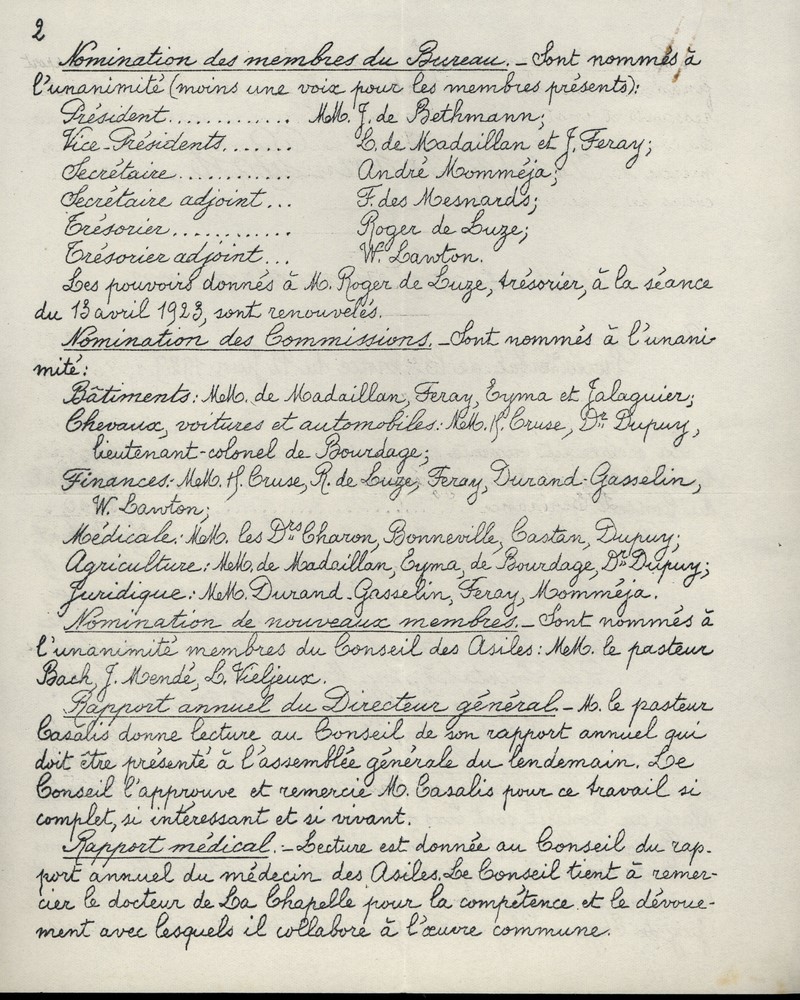 2
Nomination des membres du Bureau. - Sont nommés à
l'unanimité (moins une voix pour les membres présents):
Président............ MM. J. de Bethmann;
Vice-Présidents....... L. de Madaillan et J. Feray;
Secrétaire............ André Momméja;
Secrétaire adjoint... F. des Mesnards;
Trésorier............ Roger de Luze;
Trésorier adjoint... W. Lawton.
Les pouvoirs donnés à M. Roger de Luze, trésorier, à la séance
du 13 avril 1923, sont renouvelés.
Nomination des Commissions. - Sont nommés à l'unani-
mité:
Bâtiments: MM. de Madaillan, Feray, Eyma et Jalaguier;
Chevaux, voitures et automobiles: MM. H. Cruse, Dr Dupuy,
lieutenant-colonel de Bourdage;
Finances: MM. H. Cruse, R. de Luze, Feray, Durand-Gasselin,
W. Lawton;
Médicale: MM. les Drs Charon, Bonneville, Castan, Dupuy;
Agriculture: MM. de Madaillan, Eyma, de Bourdage, Dr Dupuy;
Juridique: MM. Durand-Gasselin, Feray, Momméja.
Nomination de nouveaux membres. - Sont nommés à
l'unanimité membres du Conseil des Asiles: MM. le pasteur
Bach, J. Mendé, L. Vieljeux.
Rapport annuel du Directeur général. - M. le pasteur
Casalis donne lecture au Conseil de son rapport annuel qui
doit être présenté à l'assemblée générale du lendemain. Le
Conseil l'approuve et remercie M. Casalis pour ce travail si
complet, si intéressant et si vivant.
Rapport médical. - Lecture est donnée au Conseil du rap-
port annuel du médecin des Asiles. Le Conseil tient à remer-
cier le docteur de La Chapelle pour la compétence et le dévoue-
ment avec lesquels il collabore à l'œuvre commune.